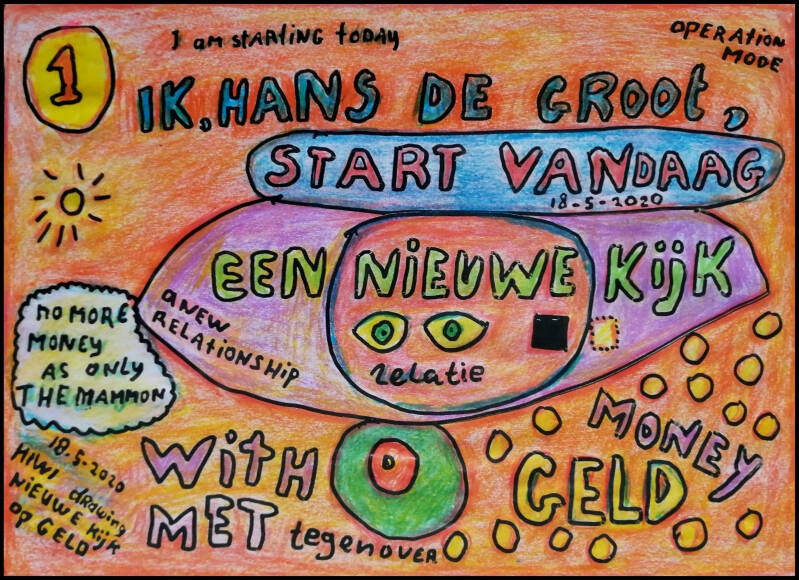 1
I am STARTiNG TODAY
OPERATiON
MODE
IK, HANS DE GROOT,
START VANDAAG
18-5-2020
EEN NiEUWE KijK
A NEW
RELATiONSHiP
relatie
NO MORE
MONEY
AS ONLY
THE MAMMON
MONEY
WitH
GELD
MET tegenOVER
18.5-2020
HiWi drawing
NiEUWE Kijk
op GELD